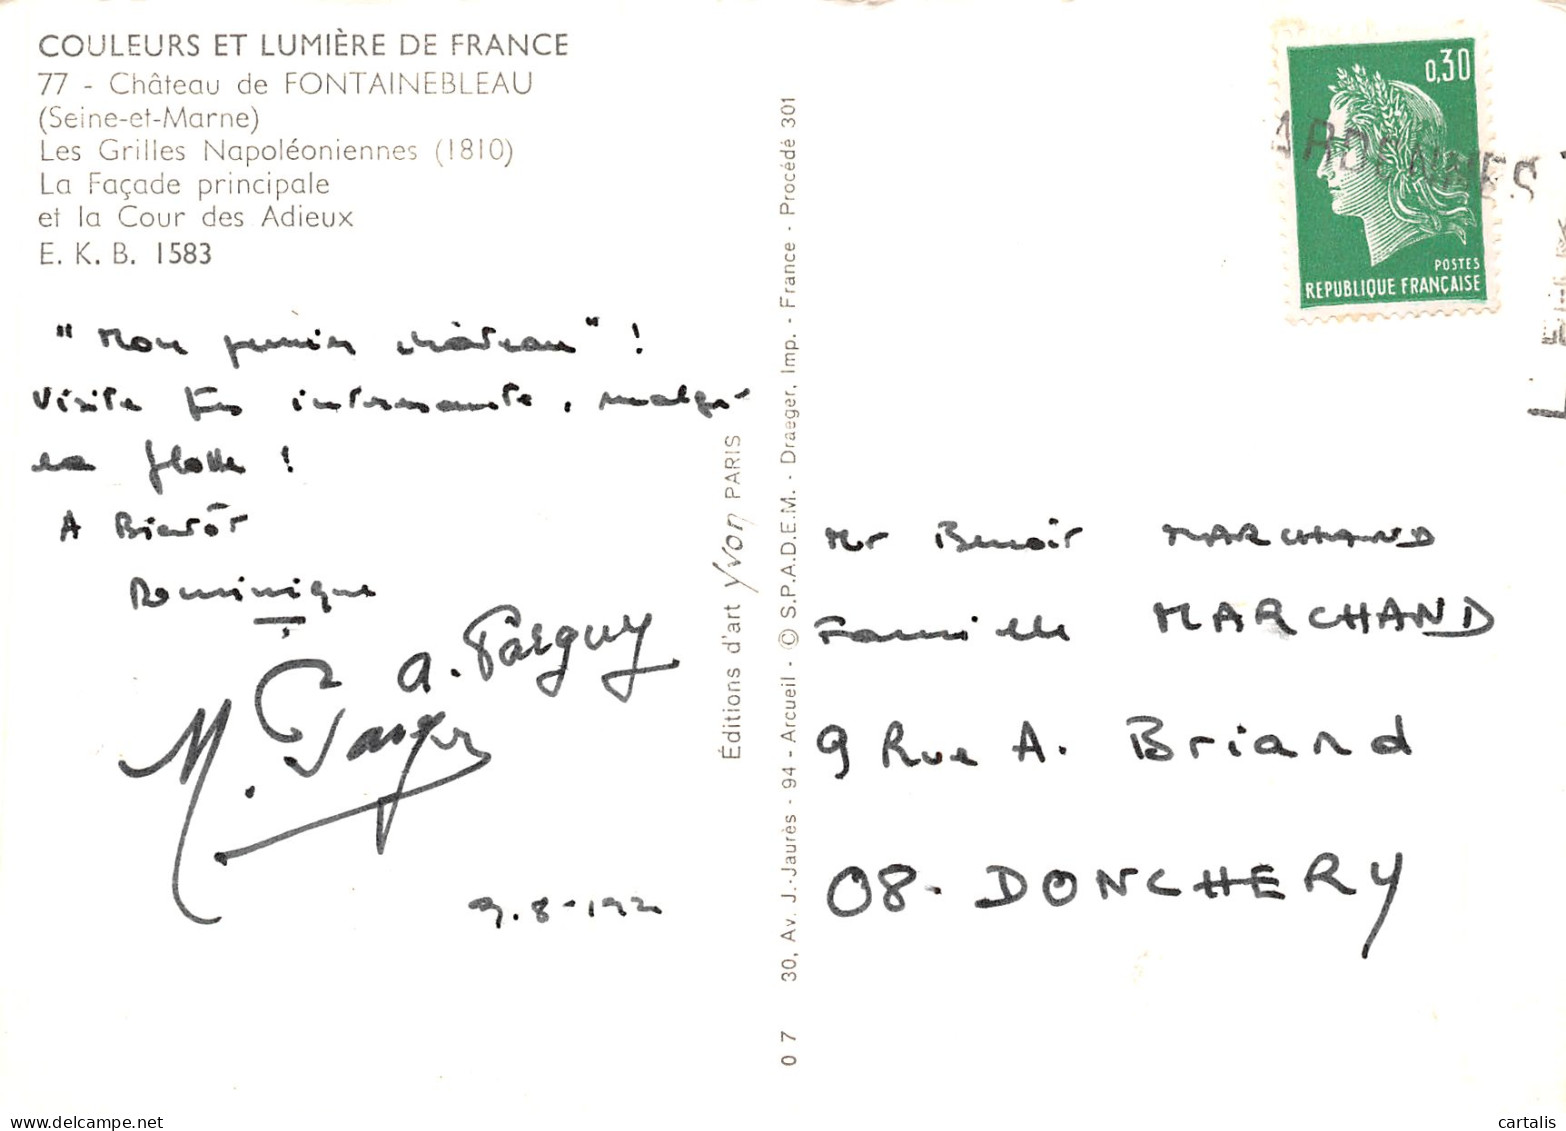 COULEURS ET LUMIÈRE DE FRANCE
77 - Château de FONTAINEBLEAU
(Seine-et-Marne)
Les Grilles Napoléoniennes (1810)
La Façade principale
et la Cour des Adieux
E. K. B. 1583
"Mon premier château" !
Visite très intéressante, malgré
la flotte !
A Bientôt
Dominique
a. Parguy
M.
Éditions d'art Yvon PARIS
30, Av. J.-Jaurès - 94 - Arcueil - © S.P.A.D.E.M. - Draeger, Imp. - France - Procédé 301
0 7
0,30
POSTES
REPUBLIQUE FRANÇAISE
ARDENNES
Mr Benoît MARCHAND
Famille MARCHAND
9 Rue A. Briand
08. DONCHERY
cartalis